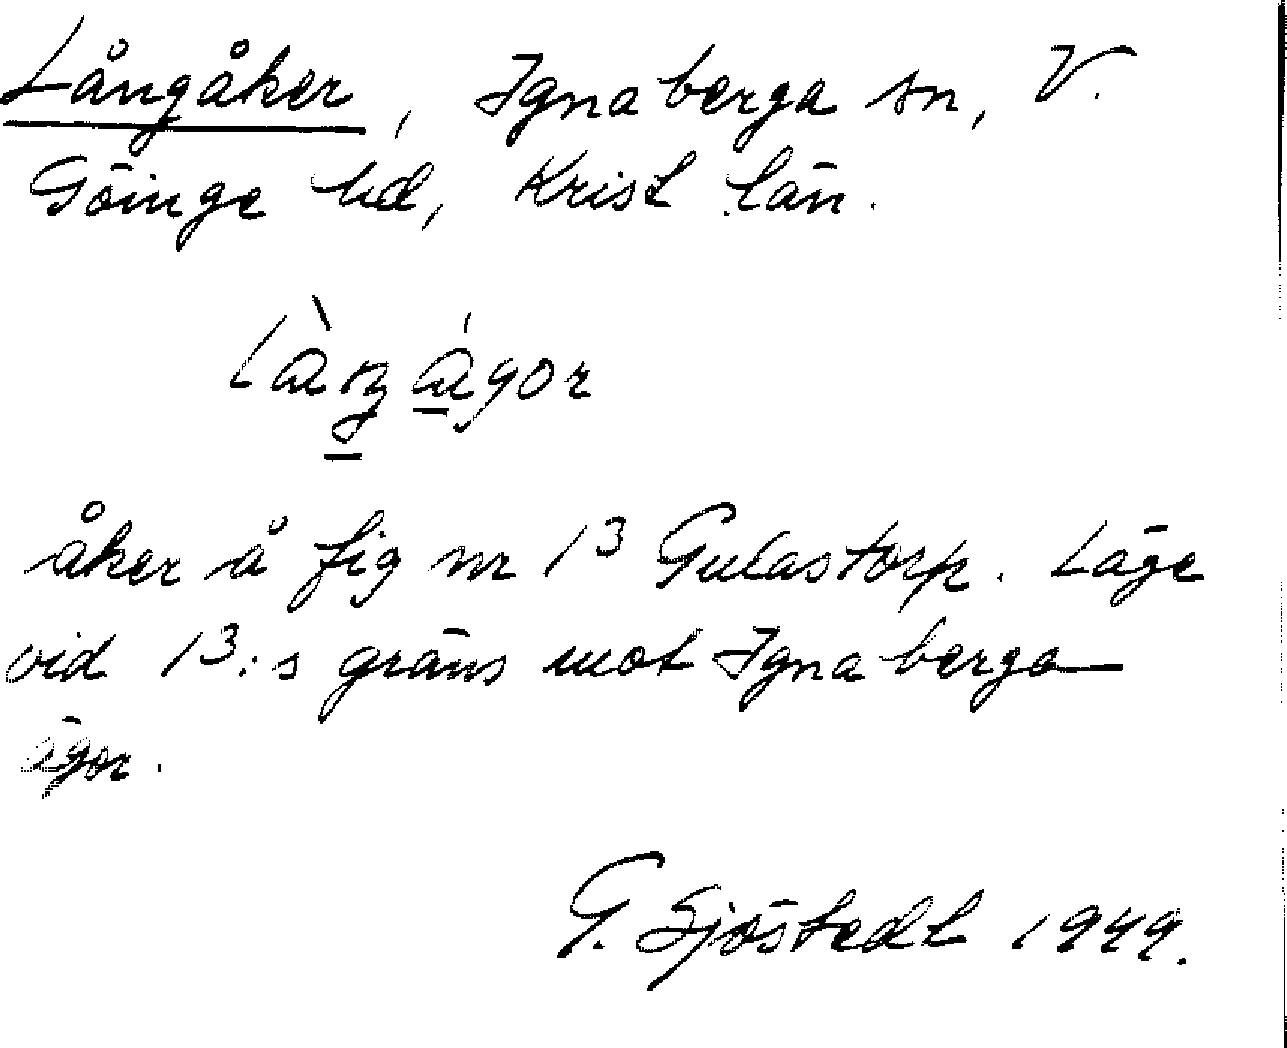 Långåker, Ignaberga sn, V.
Göinge hd, Krist län.
åker å fig nr 13 Gulastorp. Läge
vid 13:s gräns mot Ignaberga
ägor.
G. Sjöstedt 1949.